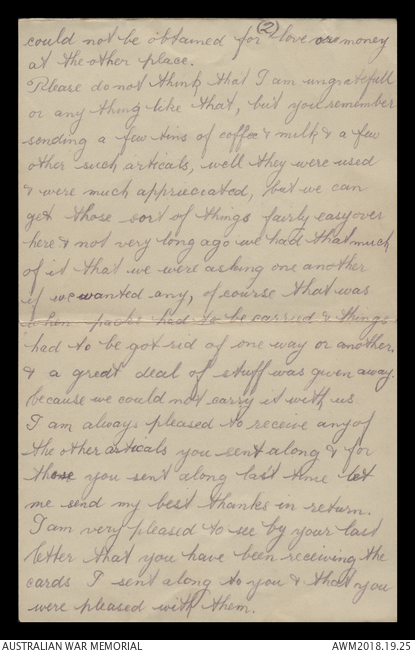 (2)
could not be obtained for love or money
at the other place.
Please do not think that I am ungratefull
or any thing like that, but you remember
sending a few tins of coffee & milk & a few
other such articals, well they were used
& were much apprieciated, but we can
get those sort of things fairly easy over
here & not very long ago we had that much
of it that we were asking one another
if we wanted any, of course that was
when packs had to be carried & things
had to be got rid of one way or another,
& a great deal of stuff was given away
because we could not carry it with us
I am always pleased to receive any of
the other articals you sent along & for
those you sent along last time let
me send my best thanks in return.
I am very pleased to see by your last
letter that you have been receiving the
cards I sent along to you & that you
were pleased with them.
AUSTRALIAN WAR MEMORIAL
AWM2018.19.25